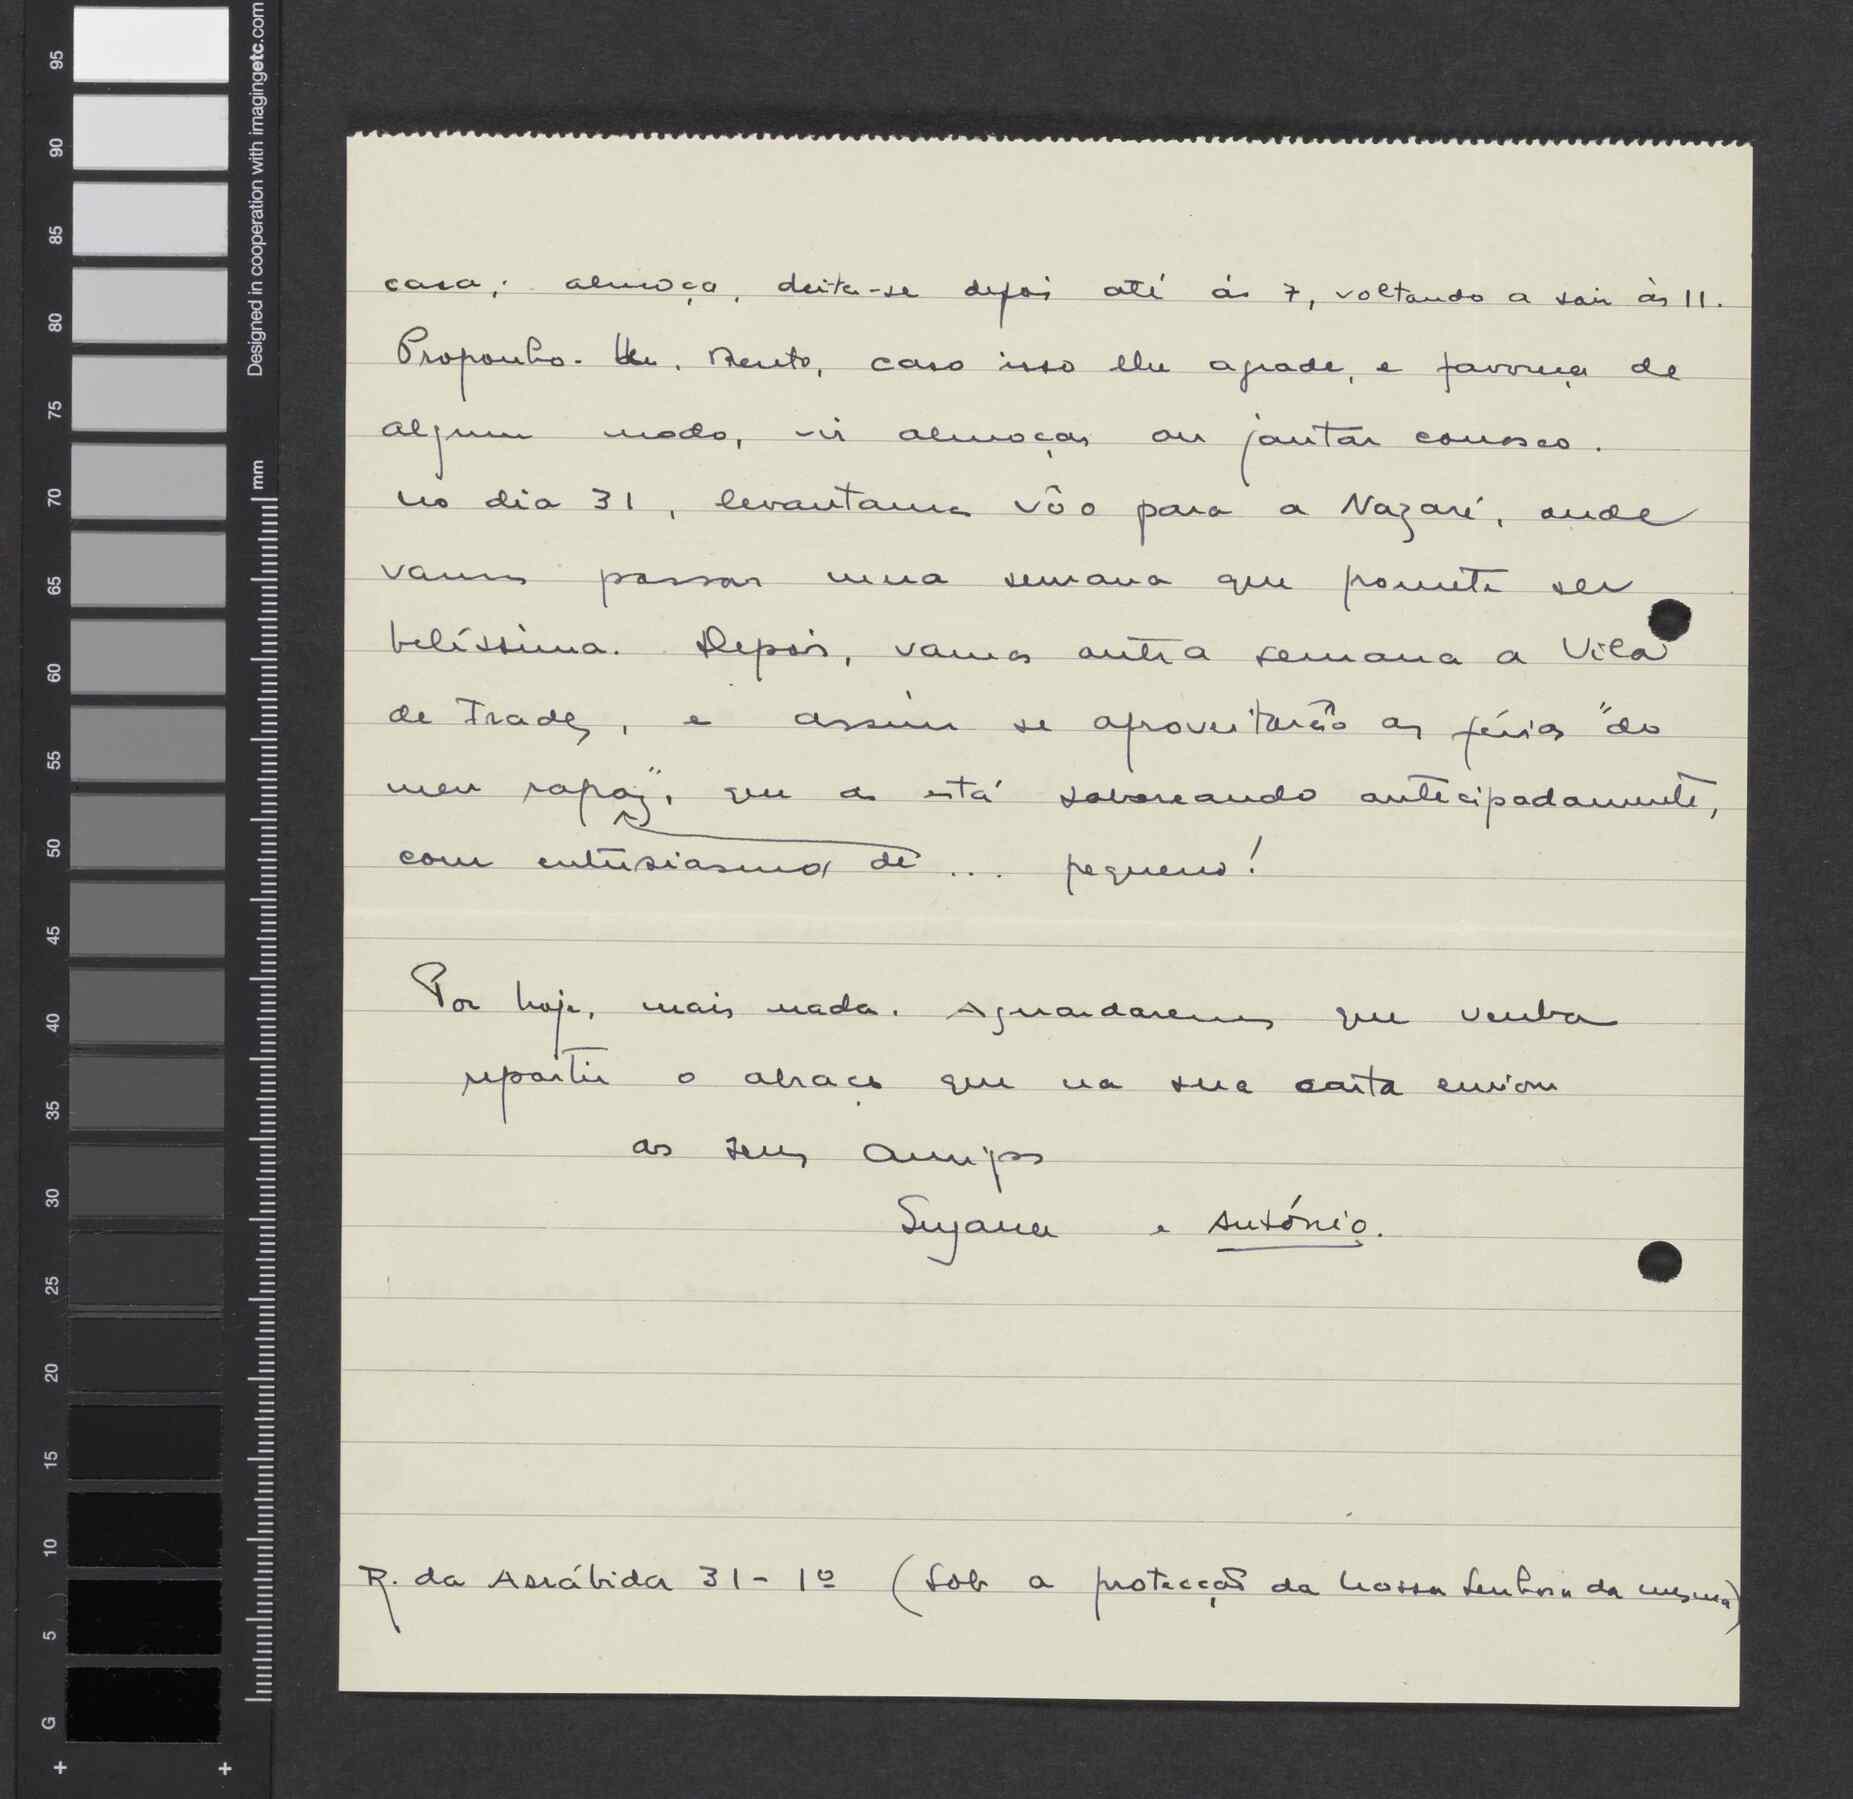 Designed in cooperation with imagingetc.com
mm
95
90
85
80
75
70
65
60
55
50
45
40
35
30
25
20
15
10
5
G
casa; almoça, deita-se depois até às 7, voltando a sair às 11.
Proponho-lhe, caso isso lhe agrade, e favoreça de
algum modo, vir almoçar ou jantar conosco.
No dia 31, levantamos vôo para a Nazaré, onde
vamos passar uma semana que promete ser
belíssima. Depois, vamos outra semana a Vila
de Frades, e assim se aproveitarão as férias "do
meu rapaz", que as está saboreando antecipadamente,
com entusiasmo de ... pequeno!
Por hoje, mais nada. Aguardaremos que venha
repartir o abraço que na sua carta enviou
aos seus amigos
Suzana e António.
R. da Arrábida 31-1º (Sob a protecção da Nossa Senhora da mesma)